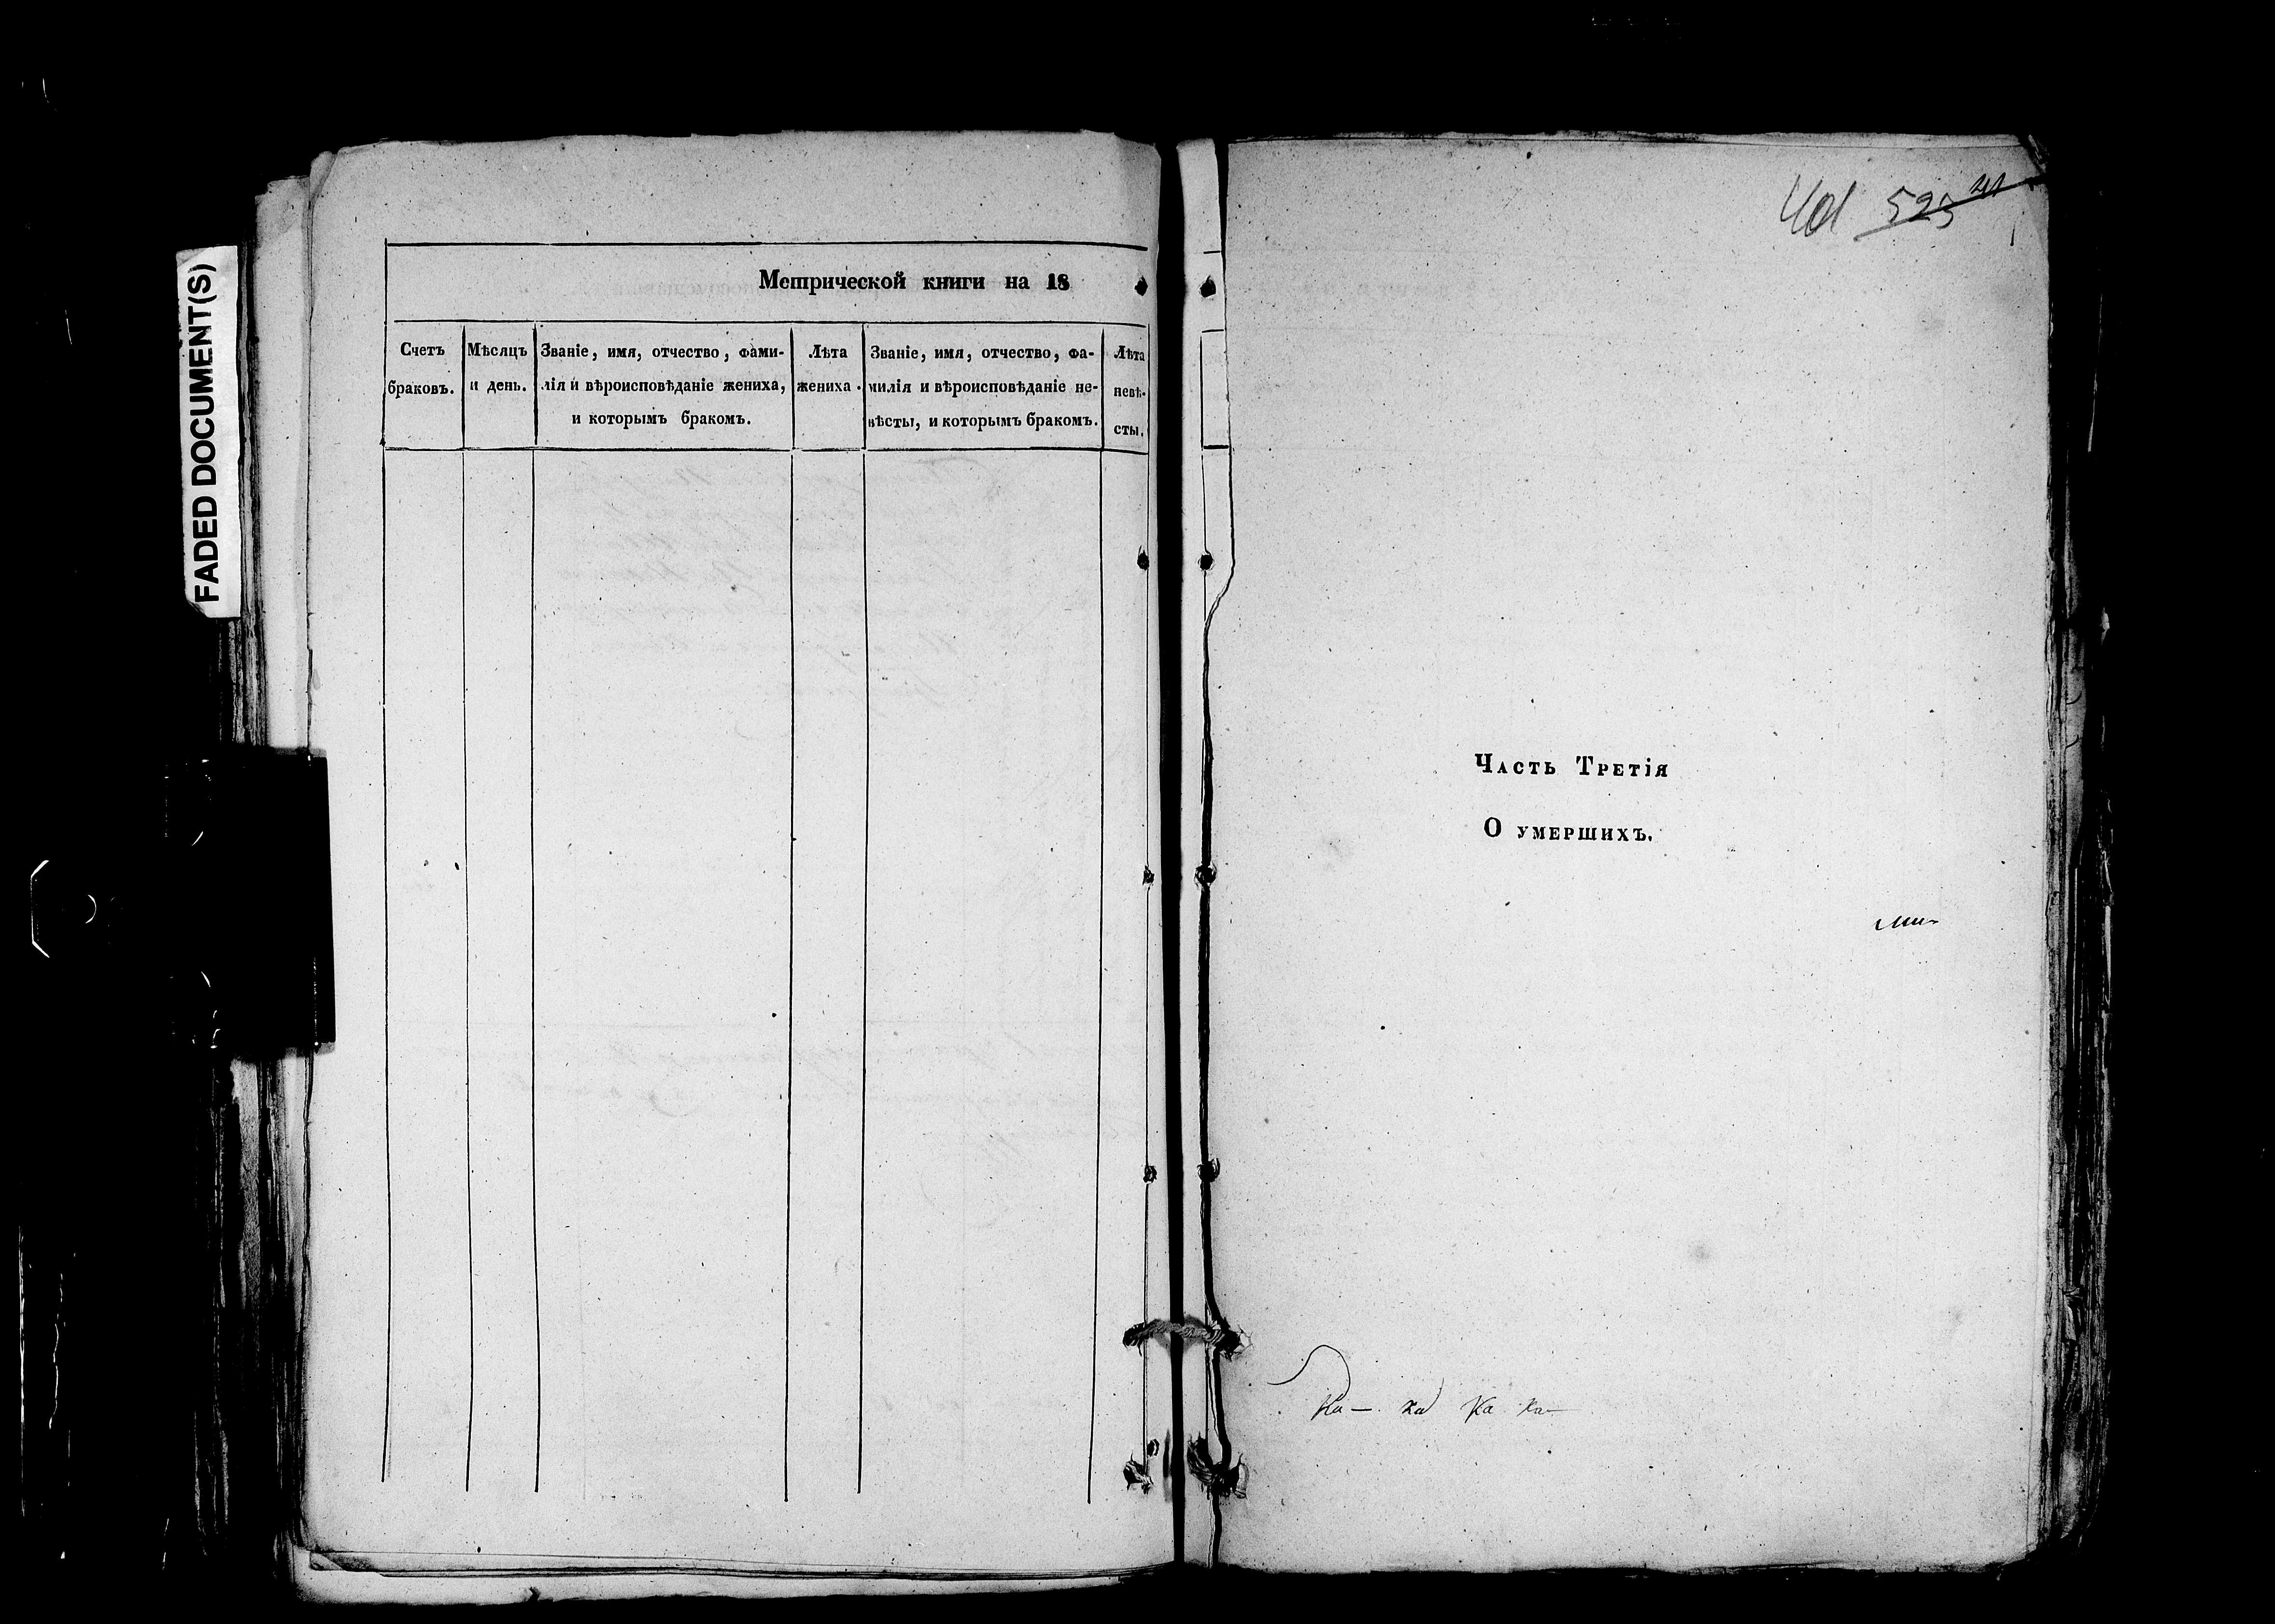 FADED DOCUMENT(S)
Метрической книги на 18
Счетъ
браковъ.
Мѣсяцъ
и день.
Званіе, имя, отчество, фами-
лія и вѣроисповѣданіе жениха,
и которымъ бракомъ.
Лѣта
жениха.
Званіе, имя, отчество, фа-
милія и вѣроисповѣданіе не-
вѣсты, и которымъ бракомъ.
Лѣта
невѣ-
сты.
401 525
Часть Третія
О умершихъ.
Ка — ка Ка ка —